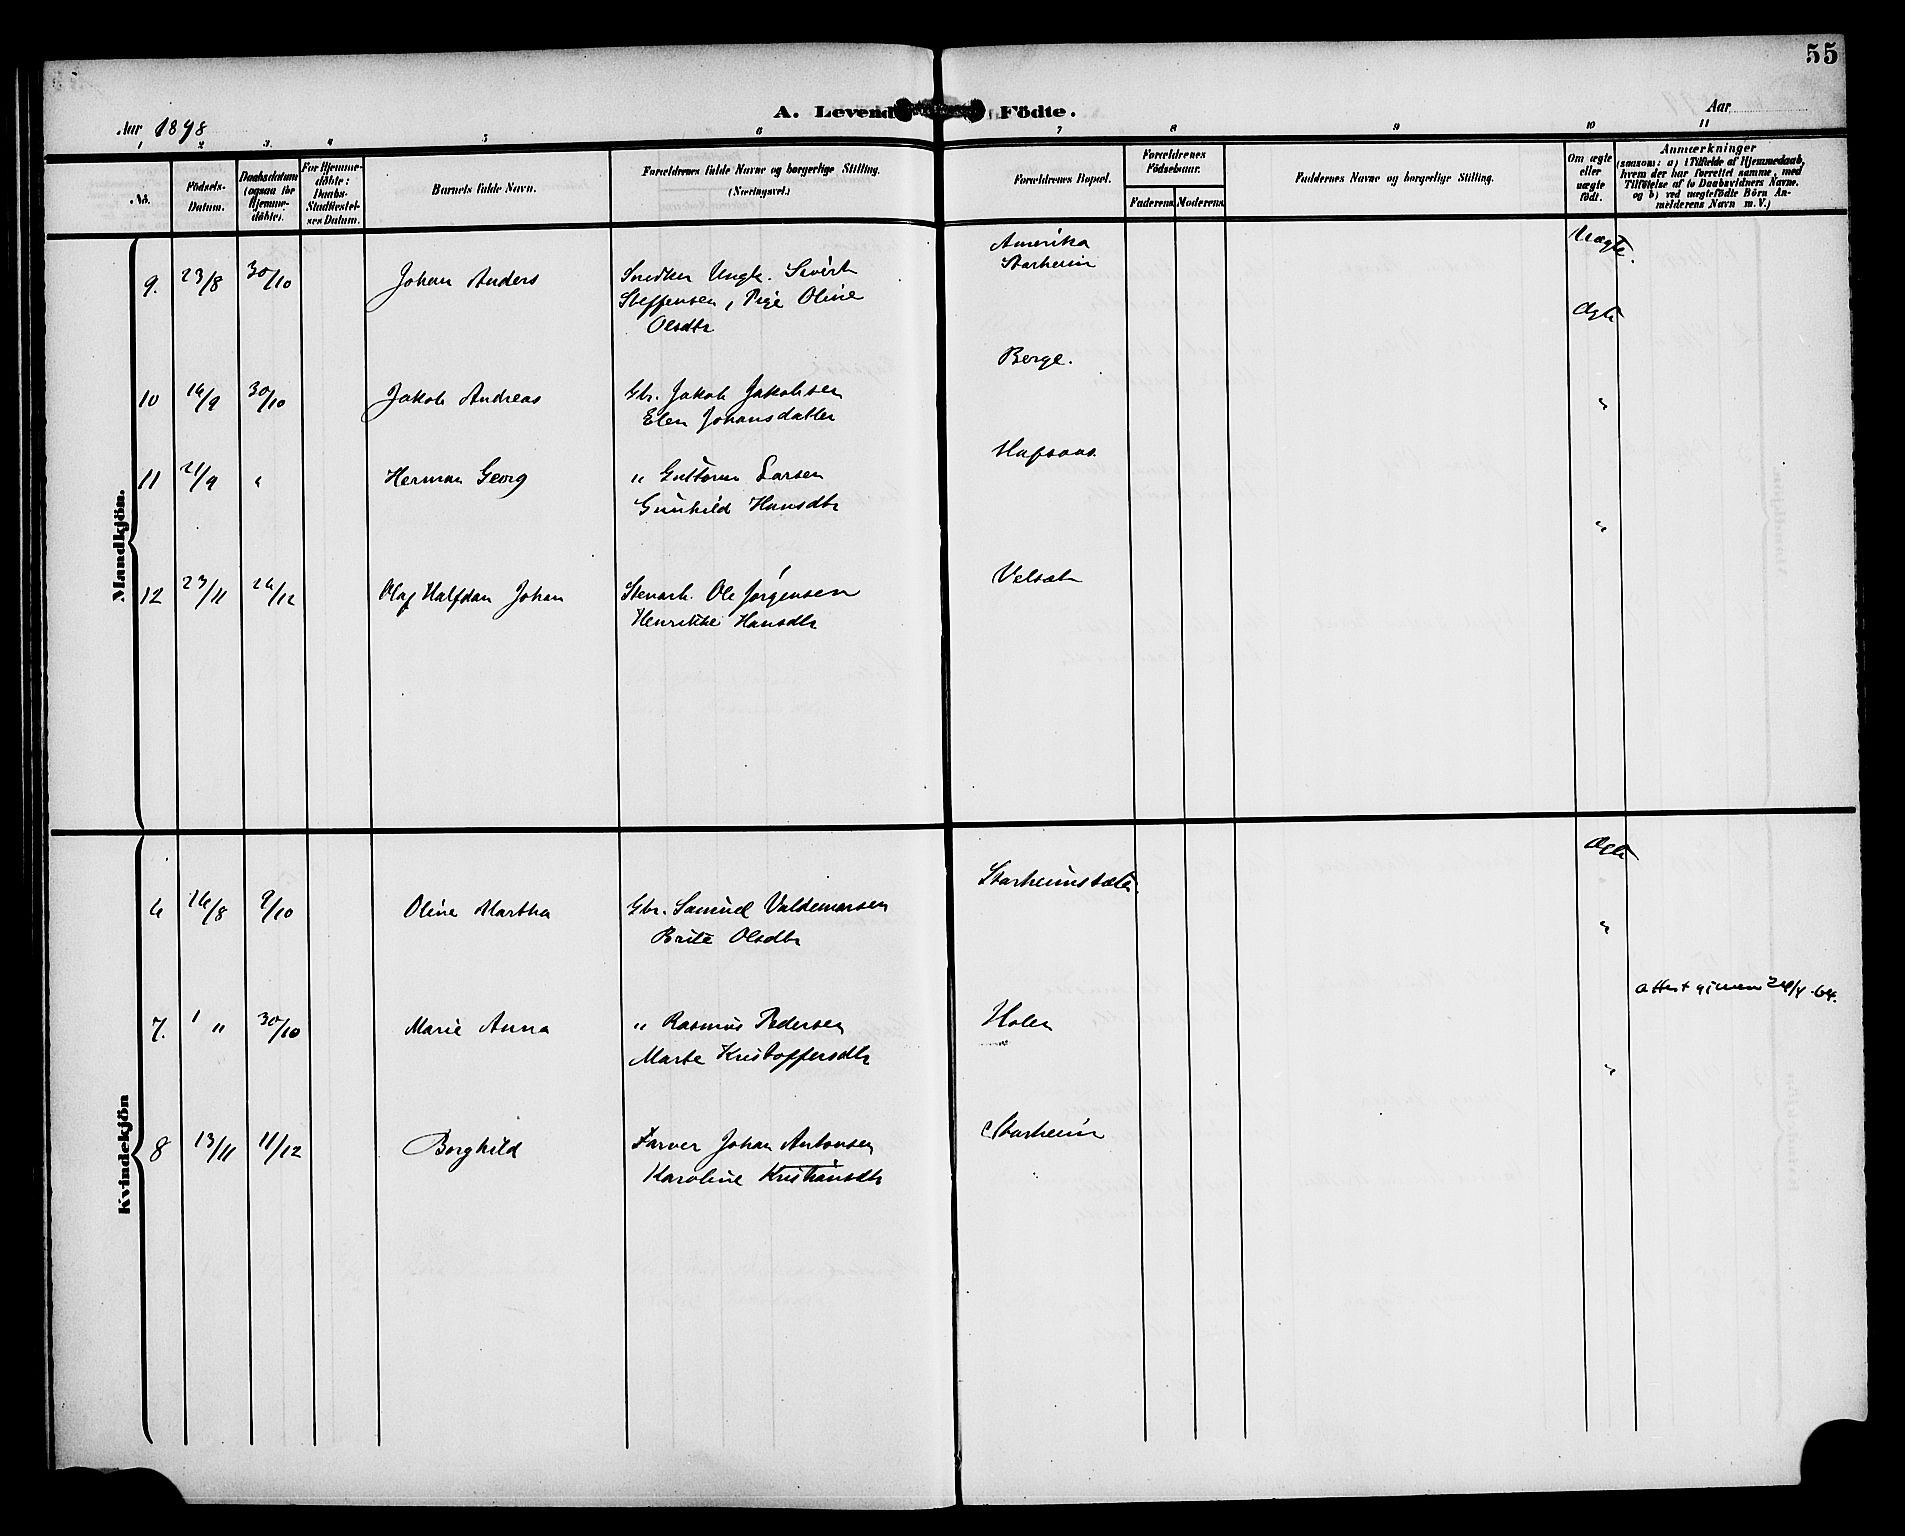 55
A. Levende Födte.
Aar 1898
Aar
1 2 3. 4 5 6 7 8 9 10 11
No.
Födsels-
Datum.
Daabsdatum
(ogsaa for
Hjemme-
döbte).
For Hjemme-
döbte:
Daabs-
Stadfæstel-
ses Datum.
Barnets fulde Navn.
Forældrenes fulde Navne og borgerlige Stilling.
(Næringsvei.)
Forældrenes Bopæl.
Forældrenes
Födselsaar.
Faderens. Moderens.
Faddernes Navne og borgerlige Stilling.
Om ægte
eller
uægte
födt.
Anmærkninger
(saasom: a) i Tilfælde af Hjemmedaab,
hvem der har forrettet samme, med
Tilföielse af to Daabsvidners Navne.
og b) ved uægtefödte Börn An-
melderens Navn m. V.)
Mandkjön.
9. 23/8 30/10 Johan Anders Snedker Ungk. Sivert
Steffensen, Pige Oline
Olsdtr
Amerika
Starheim
Uægte.
Ægte
10 16/9 30/10 Jakob Andreas Gbr. Jakob Jakobsen
Elen Johansdatter
Berge.
"
11 21/9 " Herman Georg " Guttorm Larsen
Gunhild Hansdtr
Hafsaas.
"
12 23/11 26/12 Olaf Halfdan Johan Stenarb. Ole Jørgensen
Henrikke Hansdtr
Velsæt
Kvindekjön
6 16/8 9/10 Oline Martha Gbr. Samuel Valdemarsen
Brite Olsdtr
Starheimsæter.
Ægte
"
7. 1 " 30/10 Marie Anna " Rasmus Pedersen
Marte Kristoffersdtr
Holen
Attest given 24/4-64.
"
8 13/11 11/12 Borghild Farver Johan Antonsen
Karoline Kristiansdtr
Starheim